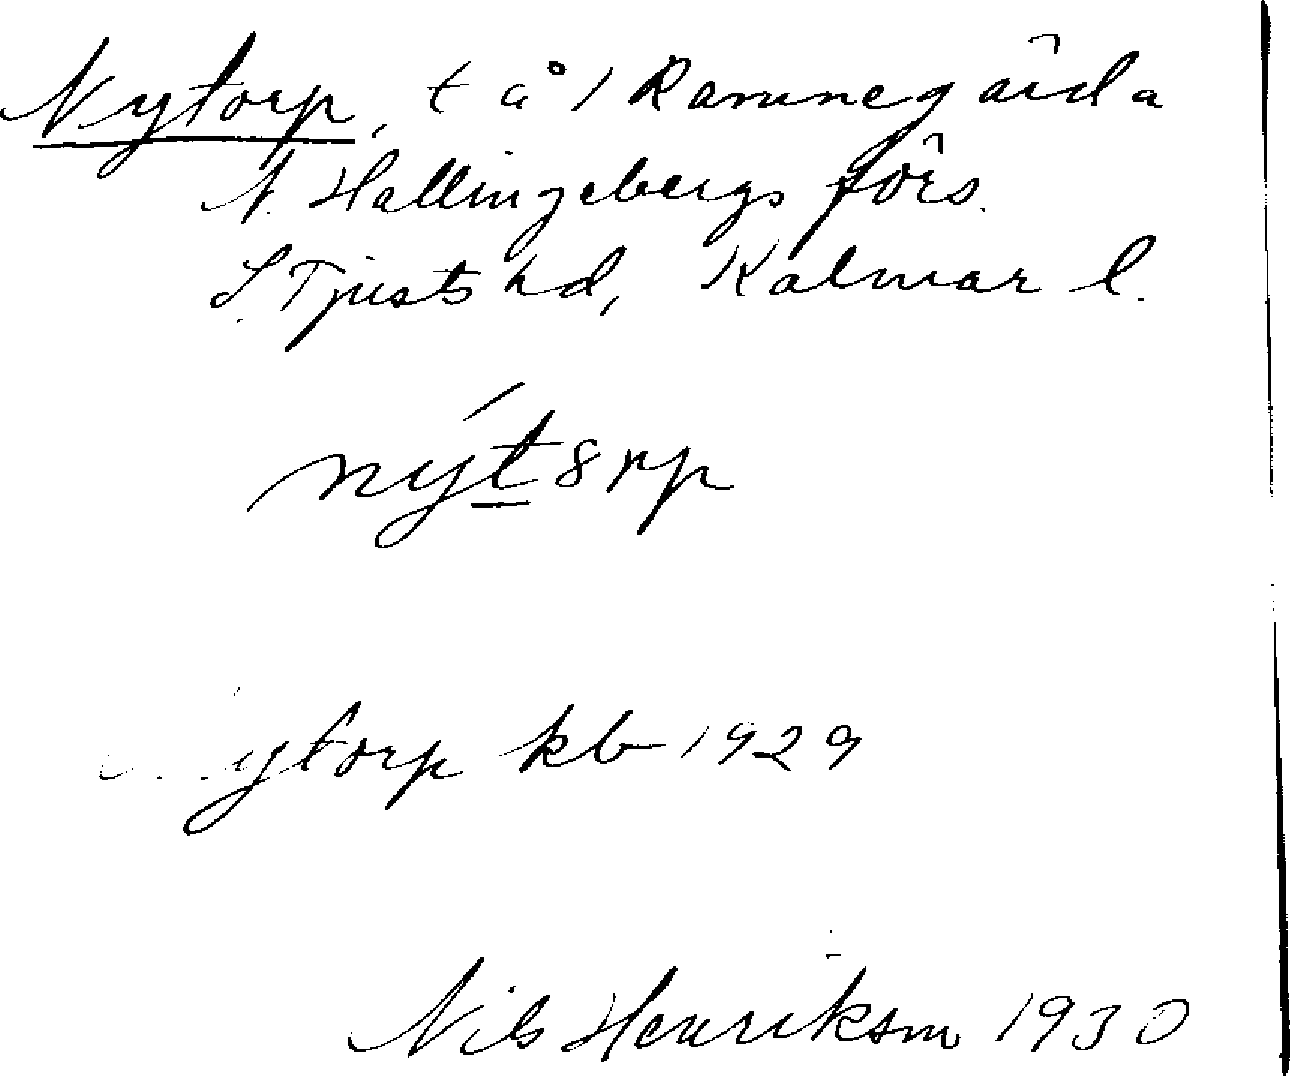 Nytorp, t å 1 Ramnegärda
N. Hallingebergs förs.
S. Tjusts hd, Kalmar l.
nýt8rp
Nytorp kb 1929
Nils Henrikson 1930